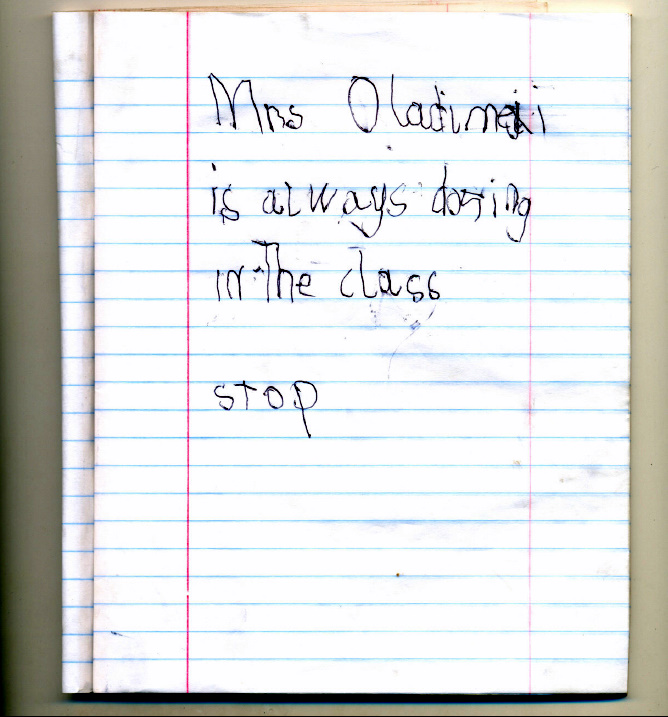 Mrs Oladimeji
is always dozing
in the class
stop